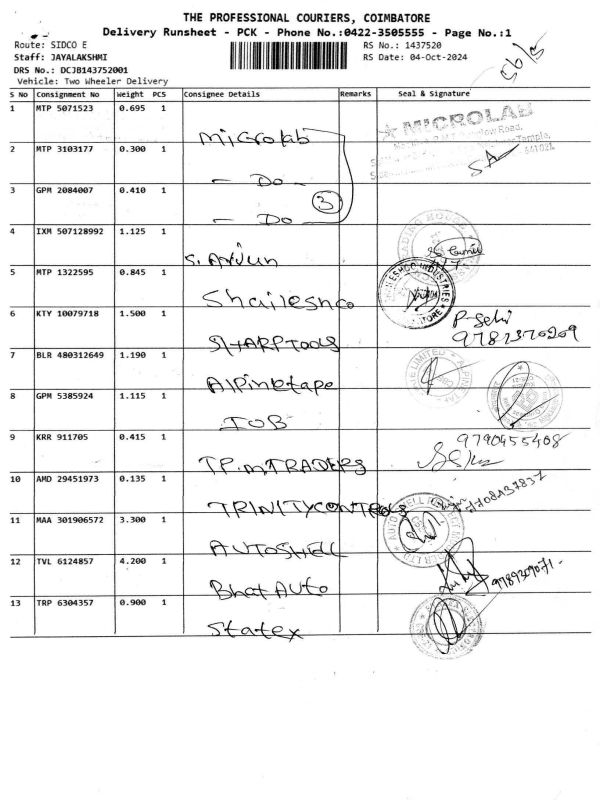 THE PROFESSIONAL COURIERS, COIMBATORE
Delivery Runsheet - PCK - Phone No.:0422-3505555 - Page No.:1
Route: SIDCO E
RS No.: 1437520
Staff: JAYALAKSHMI
RS Date: 04-Oct-2024
DRS No.: DCJB143752001
Vehicle: Two Wheeler Delivery
S No Consignment No Weight PCS Consignee Details Remarks Seal & Signature
1 MTP 5071523 0.695 1 Microlab MICROLAB
2 MTP 3103177 0.300 1 - Do -
3 GPM 2084007 0.410 1 - Do - 3
4 IXM 507128992 1.125 1 S. Arjun
5 MTP 1322595 0.845 1 Shaileshco
6 KTY 10079718 1.500 1 SHARP TOOLS
7 BLR 480312649 1.190 1 Alpinetape
8 GPM 5385924 1.115 1 IOB
9 KRR 911705 0.415 1 TPMTRADERS 9790455408
10 AMD 29451973 0.135 1 TRINITYCONTROLS
11 MAA 301906572 3.300 1 AUTOSHELL
12 TVL 6124857 4.200 1 Bhat Auto
13 TRP 6304357 0.900 1 Statex